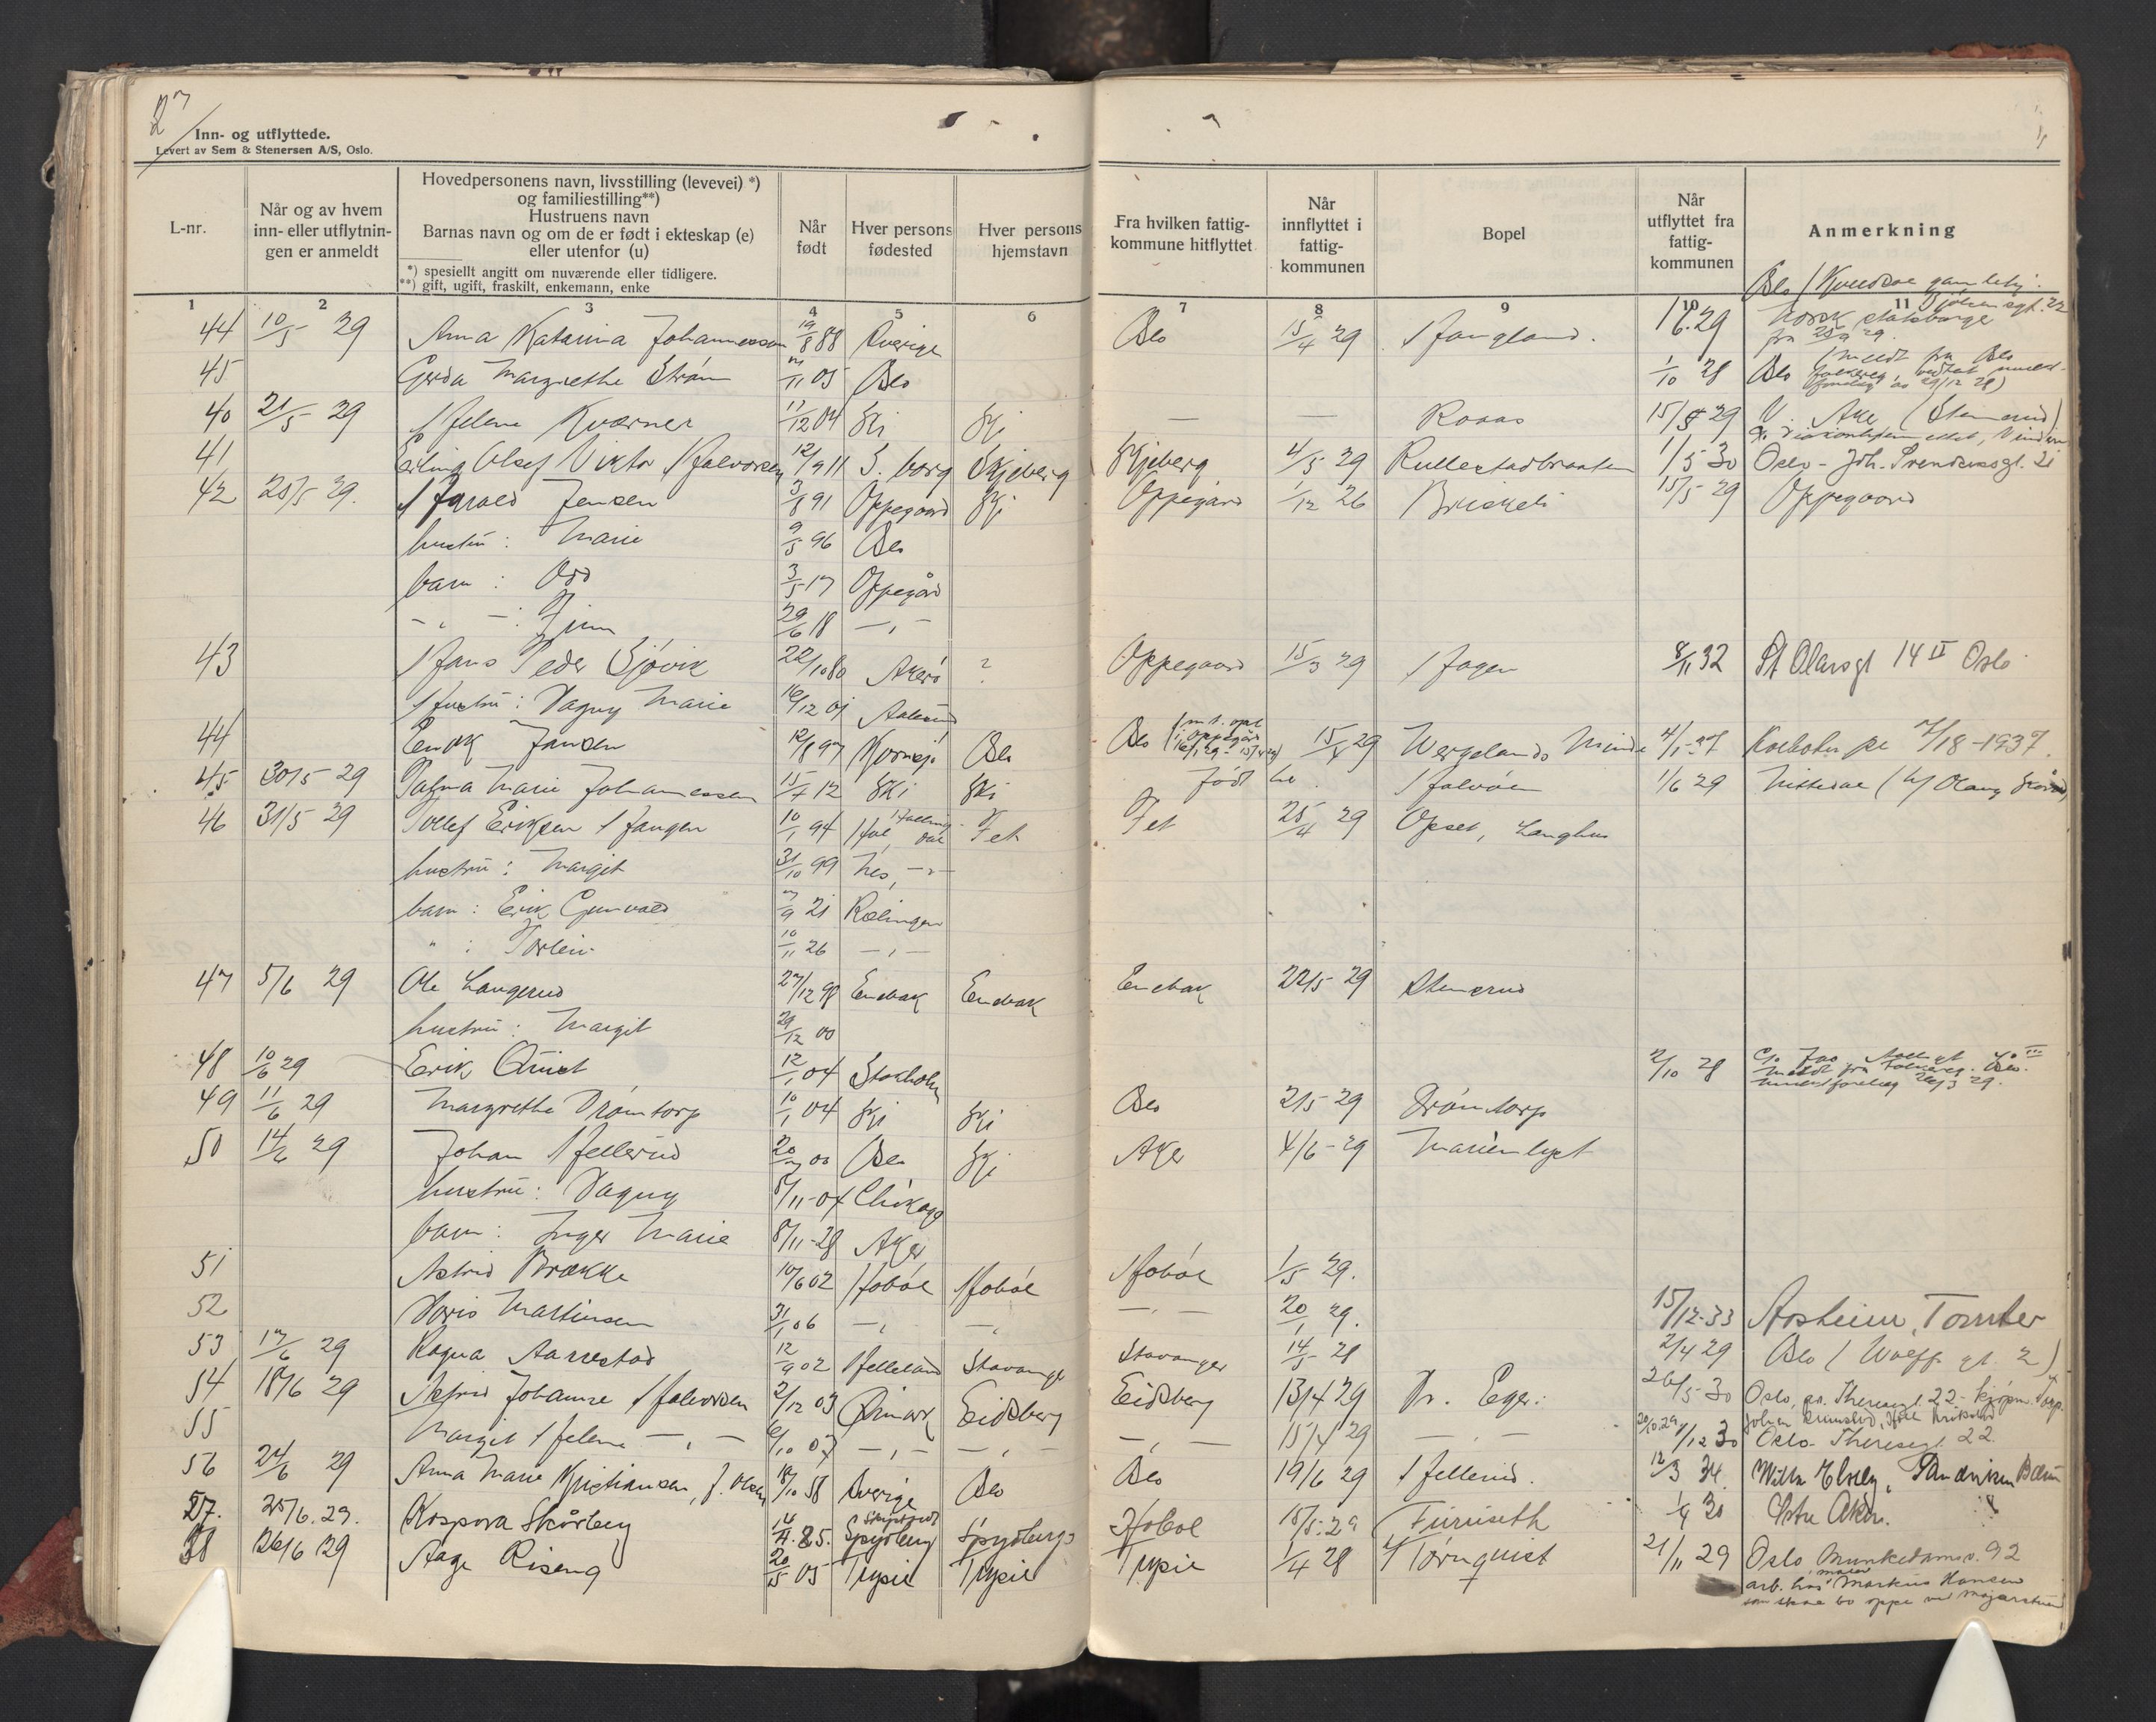 27
Inn- og utflyttede.
Levert av Sem & Stenersen A/S, Oslo.
L-nr.
Når og av hvem inn- eller utflytningen er anmeldt
Hovedpersonens navn, livsstilling (levevei) *)
og familiestilling**)
Hustruens navn
Barnas navn og om de er født i ekteskap (e)
eller utenfor (u)
*) spesielt angitt om nuværende eller tidligere.
**) gift, ugift, fraskilt, enkemann, enke
Når født
Hver persons fødested
Hver persons hjemstavn
Fra hvilken fattigkommune hitflyttet
Når innflyttet i fattigkommunen
Bopel
Når utflyttet fra fattigkommunen
Anmerkning
1 2 3 4 5 6 7 8 9 10 11
44 10/5 29 Anna Katarina Johannesson 19/8 88 Sverige Oslo 15/4 29 Haugland. 1/6.29 norsk statsborger
45 Gerda Margrethe Strøm 7/11 05 Oslo 1/10 28 Oslo (meldt fra Oslo
40 21/5 29 Helene Kværner 17/12 04 Ski Ski — — Roaas 15/5 29 V. Aker (Stenerud)
41 Erling Olaf Viktor Halvorsen 12/9 11 S. borg Skjeberg Skjeberg 4/5 29 Rullestadbraaten 1/5 30 Oslo - Joh. Svendsensgt. 21
42 28/5 29. Harald Jensen 3/8 91 Oppegaard Ski Oppegård 1/12 26 Briskeli 15/5 29 Oppegaard
hustru: Marie 9/5 96 Oslo
barn: Odd 3/5 17 Oppegård
- " - : Finn 29/6 18 - " -
43 Hans Peder Gjøvik 22/10 80 Akerø ? Oppegaard 15/3 29 Hagen 8/11 32 St Olavsgt 14 II Oslo
Hustru: Dagny Marie 16/12 01 Aalesund
44 Enok Jansen 12/8 97 Kornsjø Oslo Oslo 15/4 29 Wergelands Minde 4/1-37 Kolbotn pr 7/18-1937.
45 30/5 29 Palma Marie Johannessen 15/4 12 Ski Ski Født her Halvøen 1/6 29 Nittedal
46 31/5 29 Tollef Eriksen Haugen 10/1 94 Hol, Hallingdal Fet Fet 25/4 29 Opset, Langhus
hustru: Margit 31/10 99 Nes, - " -
barn: Erik Gunvald 7/9 21 Rælingen
" : Torlein 10/11 26 - " -
47 5/6 29 Ole Langerud 27/12 98 Enebak Enebak Enebak 22/5 29 Stenerud
hustru: Margit 29/12 00
48 10/6 29 Erik Quist 12/1 04 Stockholm 2/10 28
49 11/6 29 Margrethe Drømtorp 10/1 04 Ski Ski Oslo 2/5 29 Drømtorp
50 14/6 29 Johan Hellerud 20/7 00 Oslo Ski Aker 4/6-29 Marienlyst
hustru: Dagny 5/11-04 Chikago
barn: Inger Marie 8/11-28 Aker
51 Astrid Brække 10/6 02 Hobøl Hobøl Hobøl 1/5 29.
52 Doris Martinsen 31/1 06 - " - - " - - " - 20/1 29. 15/12-33 Aasheim, Tomter
53 17/6 29 Ragna Aarrestad 12/9 02 Helleland Stavanger Stavanger 14/5 28 2/4 29 Oslo (Wolffs gt. 2)
54 18/6 29 Astrid Johanne Halvorsen 2/12 03 Ømark Eidsberg Eidsberg 13/4 29 Dr. Eger: 26/5-30 Oslo, pr. Theresegt. 22 - kjøpm. Torp.
55 Margit Helene - " - 6/10 07 - " - - " - - " - 15/4 29 - " - 1/12 30 Oslo - Theresegt. 22
56 24/6 29 Anna Marie Kristiansen, f. Olsen 18/10 58 Sverige Oslo Oslo 19/6 29 Hellerud. 12/3 34. Villa Elvely, Sandviken Bærum
57. 25/6.29. Kaspara Skårberg 14/11.85. Spydberg Spydberg Hobøl 15/5.29 Furuseth 1/4 30 Østre Aker.
58 26/6 29 Aage Riseng 20/5 05 Trysil Trysil Trysil 1/4 28 Tørnquist 21/11 29 Oslo Munkedamsv. 92
arb. hos maler Markus Hansen
som skal bo oppe ved Majorstuen